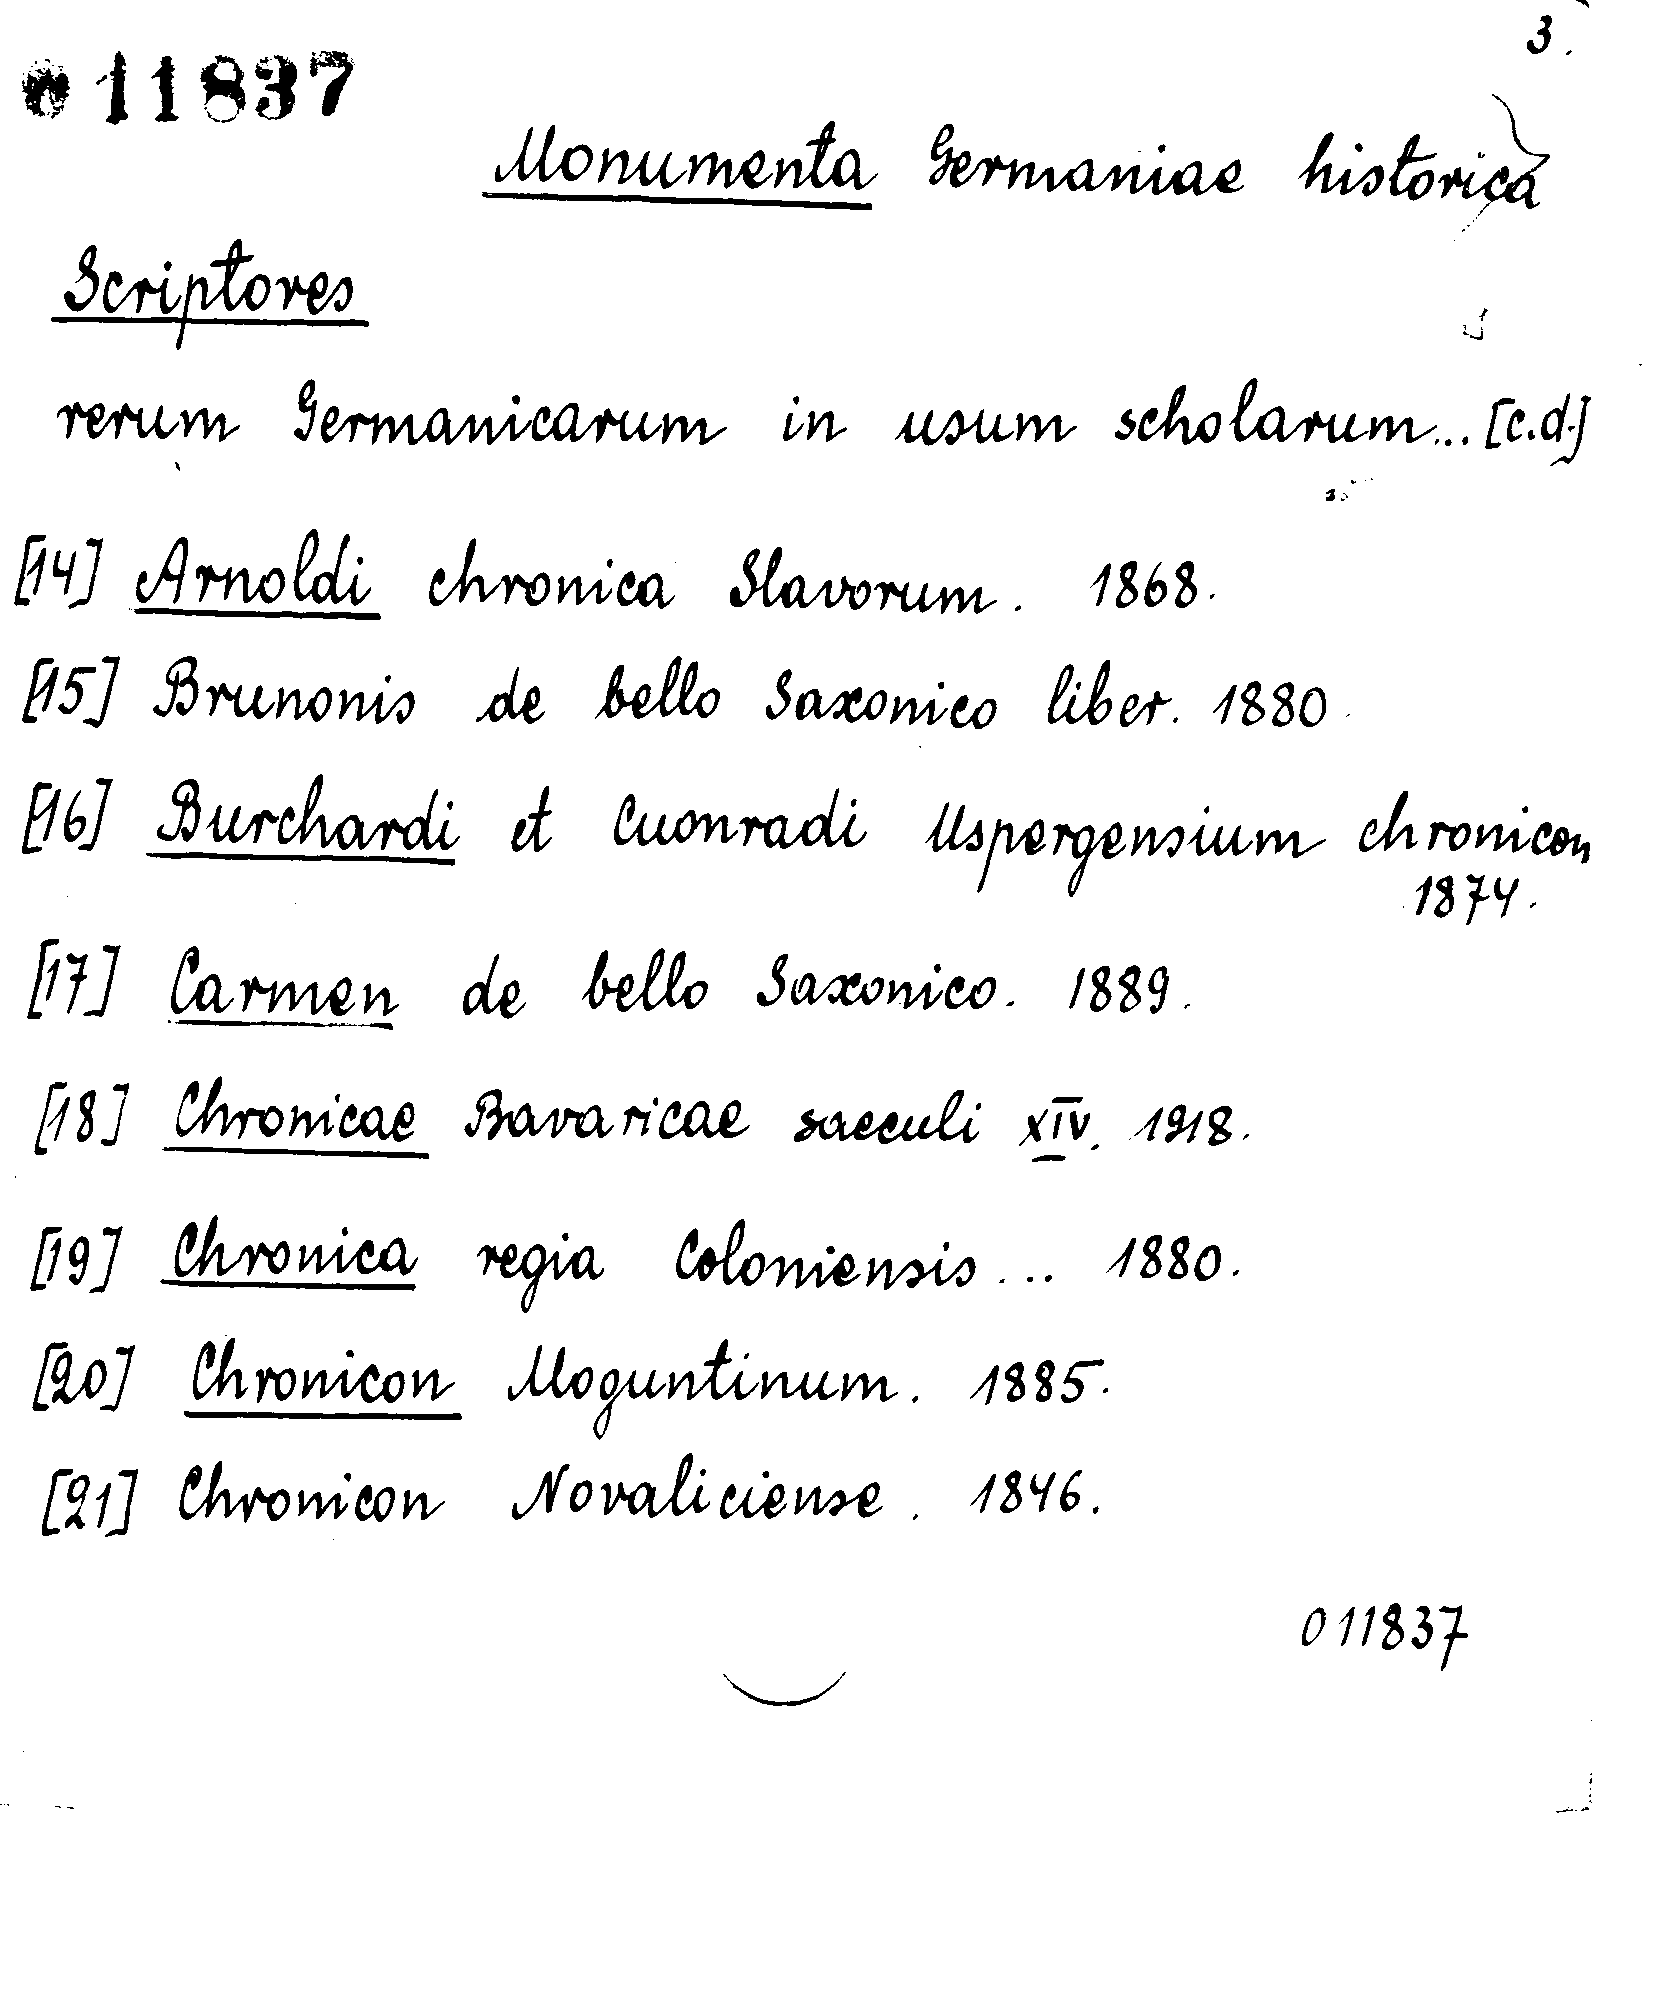 3.
011837
Monumenta Germaniae historica
Scriptores
rerum Germanicarum in usum scholarum... [c.d.]
[14] Arnoldi chronica Slavorum. 1868.
[15] Brunonis de bello Saxonico liber. 1880.
[16] Burchardi et Cuonradi Uspergensium chronicon
1874.
[17] Carmen de bello Saxonico. 1889.
[18] Chronicae Bavaricae saeculi XIV. 1918.
[19] Chronica regia Coloniensis... 1880.
[20] Chronicon Moguntinum. 1885.
[21] Chronicon Novaliciense. 1846.
011837